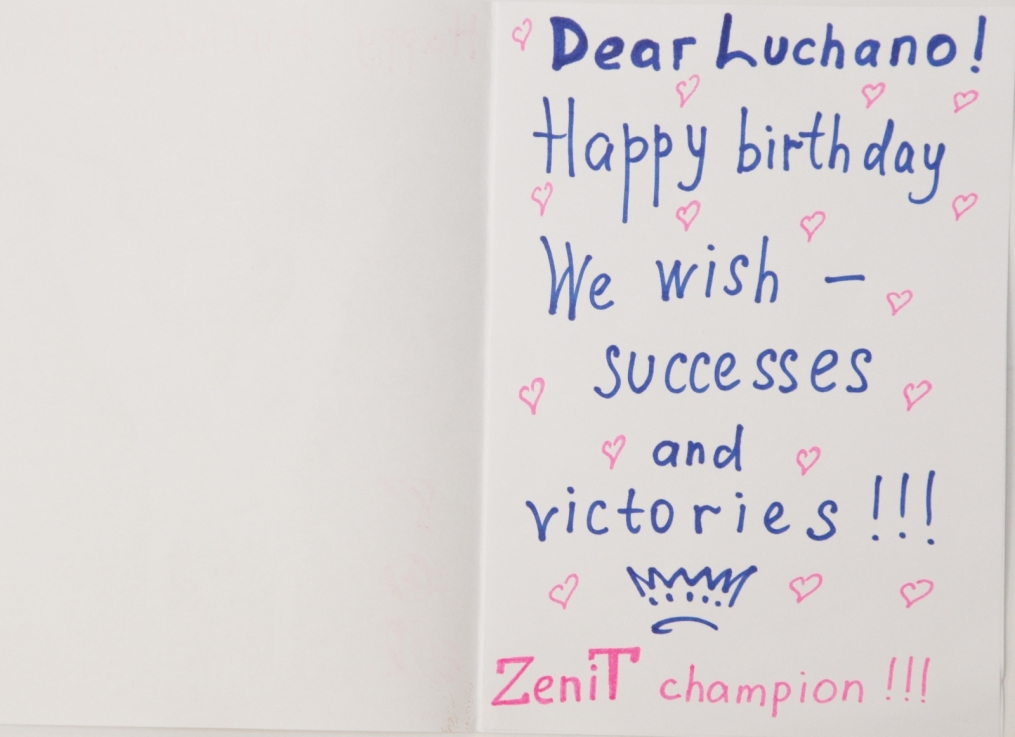 Dear Luchano!
Happy birthday
We wish –
successes
and
victories !!!
ZeniT champion !!!